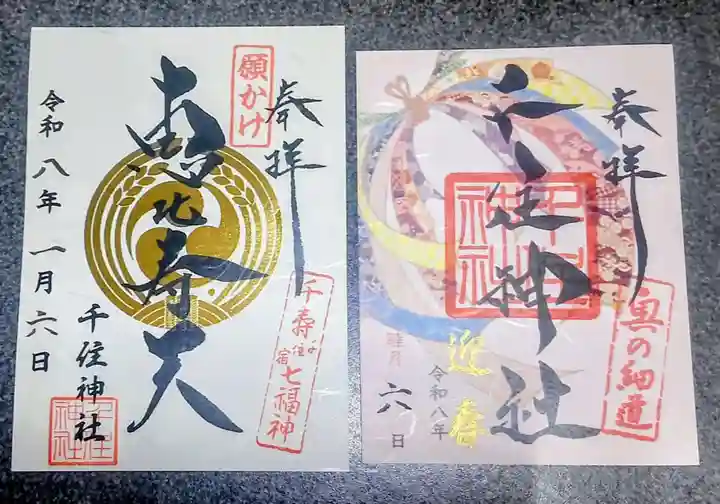 奉拝
願かけ
恵比寿天
千寿七福神
宿住
令和八年一月六日
千住神社
千住神社
奉拝
千住神社
千住神社
奥の細道
迎春
令和八年
睦月
六日